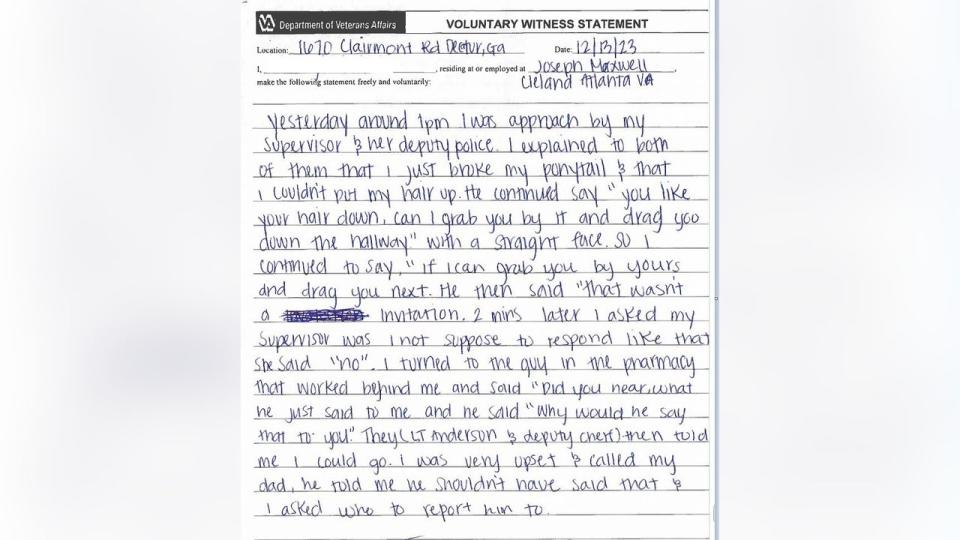 VA Department of Veterans Affairs
VOLUNTARY WITNESS STATEMENT
Location: 1670 Clairmont Rd Dectur, Ga Date: 12/13/23
I, , residing or employed at Joseph Maxwell
make the following statement freely and voluntarily: Cleland Atlanta VA
Yesterday around 1pm I was approach by my
supervisor & her deputy police. I explained to both
of them that i just broke my ponytail & that
i couldn't put my hair up. He continued say "you like
your hair down, can I grab you by it and drag you
down the hallway" with a straight face. So I
continued to say, "if I can grab you by yours
and drag you next. He then said "that wasn't
a invitation. 2 mins later I asked my
supervisor was I not suppose to respond like that
she said "no". I turned to the guy in the pharmacy
that worked behind me and said "Did you hear, what
he just said to me and he said "Why would he say
that to you." They (LT Anderson & deputy cheif) then told
me I could go. i was very upset & called my
dad, he told me he shouldn't have said that &
I asked who to report him to.